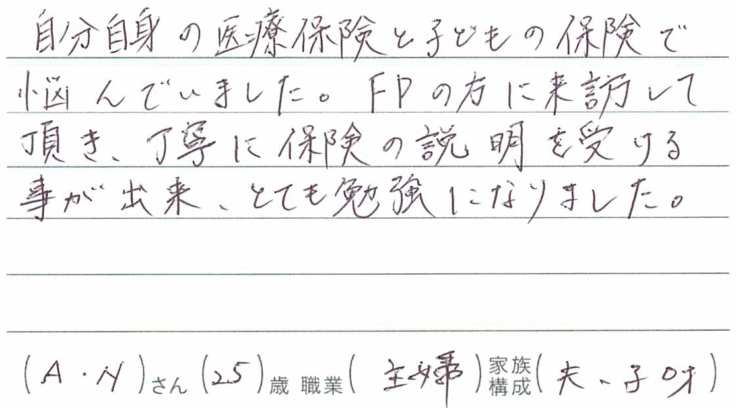 自分自身の医療保険と子どもの保険で
悩んでいました。FPの方に来訪して
頂き、丁寧に保険の説明を受ける
事が出来、とても勉強になりました。
(A・N)さん(25)歳 職業(主婦)家族構成(夫、子0才)